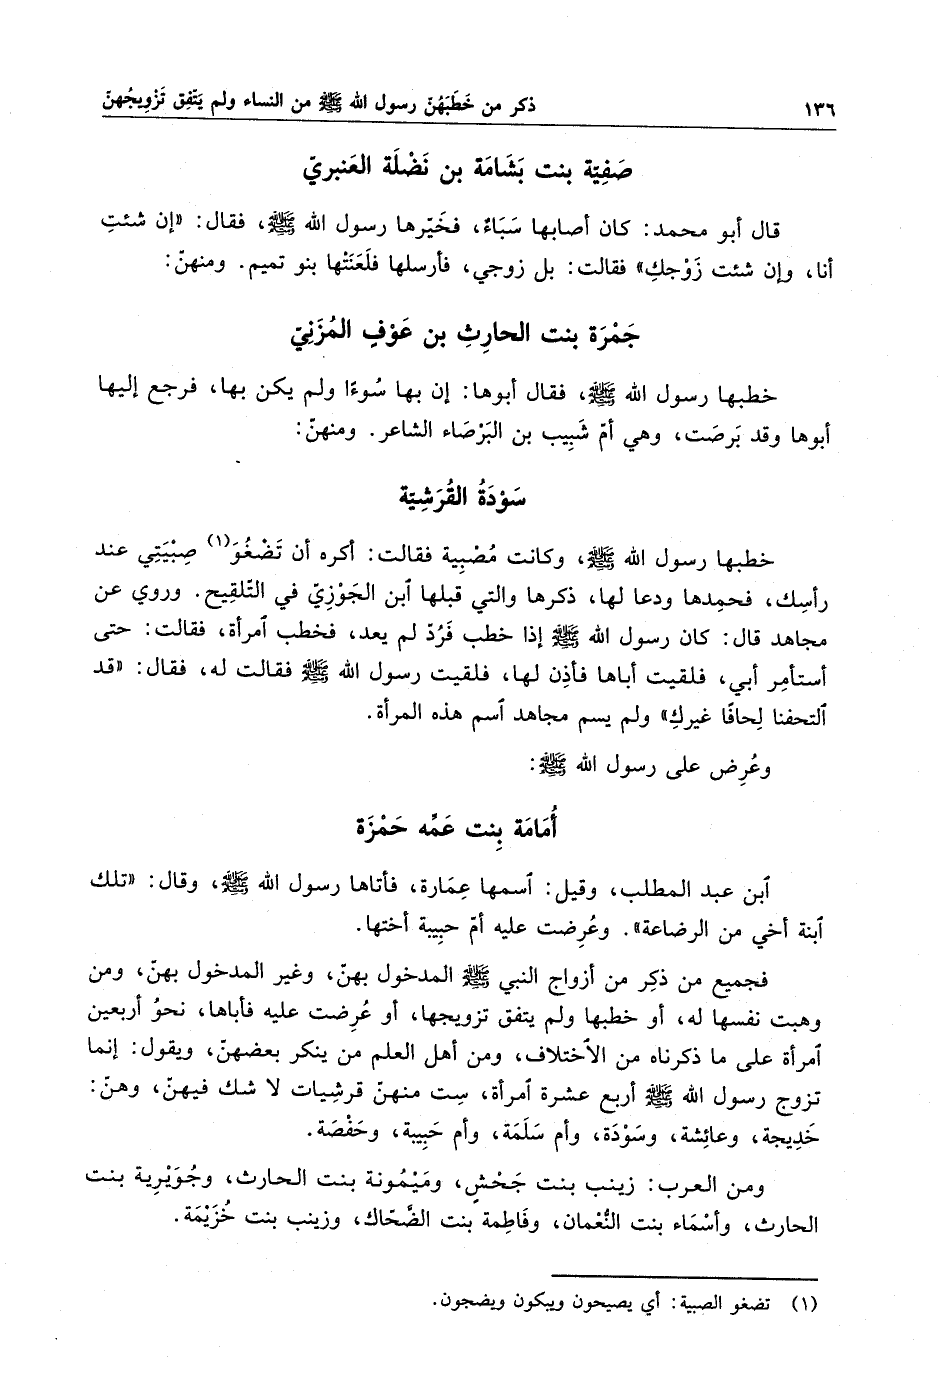 ١٣٦ ذكر من خَطَبَهُنّ رسول الله ﷺ من النساء ولم يَتّفِق تَزْوِيجُهنّ
صَفِيّة بنت بَشَامَة بن نَضْلَة العَنبريّ
قال أبو محمد: كان أصابها سَبَاءٌ، فخَيّرها رسول الله ﷺ، فقال: «إن شئتِ
أنا، وإن شئت زَوْجكِ» فقالت: بل زوجي، فأرسلها فلَعَنَتْها بنو تميم. ومنهنّ:
جَمْرَة بنت الحارِثِ بن عَوْفٍ المُزَنِيّ
خطبها رسول الله ﷺ، فقال أبوها: إن بها سُوءًا ولم يكن بها، فرجع إليها
أبوها وقد بَرصَت، وهي أمّ شَبِيب بن البَرْصَاء الشاعر. ومنهنّ:
سَوْدَةُ القُرَشِيّة
خطبها رسول الله ﷺ، وكانت مُصْبِية فقالت: أكره أن تَضْغُوَ(١) صِبْيَتِي عند
رأسِك، فحمِدها ودعا لها، ذكرها والتي قبلها ٱبن الجَوْزِيّ في التّلقِيح. وروي عن
مجاهد قال: كان رسول الله ﷺ إذا خطب فَرُدّ لم يعد، فخطب ٱمرأة، فقالت: حتى
أستأمِر أبي، فلقيت أباها فأذِن لها، فلقيت رسول الله ﷺ فقالت له، فقال: «قد
ٱلتحفنا لِحافًا غيركِ» ولم يسم مجاهد ٱسم هذه المرأة.
وعُرِض على رسول الله ﷺ:
أُمَامَة بِنت عَمِّه حَمْزَة
ٱبن عبد المطلب، وقيل: ٱسمها عِمَارة، فأتاها رسول الله ﷺ، وقال: «تلك
ٱبنة أخي من الرضاعة». وعُرِضت عليه أمّ حبِيبة أختها.
فجميع من ذكِر من أزواج النبي ﷺ المدخول بهنّ، وغير المدخول بهنّ، ومن
وهبت نفسها له، أو خطبها ولم يتفق تزويجها، أو عُرِضت عليه فأباها، نحوُ أربعين
ٱمرأة على ما ذكرناه من الٱختلاف، ومن أهل العلم من ينكر بعضهنّ، ويقول: إنما
تزوج رسول الله ﷺ أربع عشرة ٱمرأة، سِت منهنّ قرشيات لا شك فيهنّ، وهنّ:
خَدِيجة، وعائِشة، وسَوْدَة، وأم سَلَمَة، وأم حَبِيبة، وحَفْصَة.
ومن العرب: زينب بنت جَحْشٍ، ومَيْمُونة بنت الحارث، وجُوَيْرِية بنت
الحارث، وأسْمَاء بنت النُّعْمان، وفَاطِمة بنت الضَّحّاك، وزينب بنت خُزَيْمَة.
(١) تضغو الصبية: أي يصيحون ويبكون ويضجون.